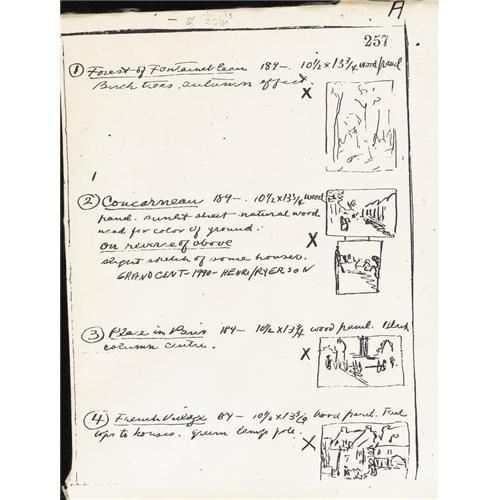 A
257
① Forest of Fontainebleau 189-. 10½ x 13¾ wood panel
Birch trees, autumn effect.
X
② Concarneau 189-. 10½ x 13¾ wood
panel. sunlit street natural wood
used for color of ground.
on reverse of above
X
slight sketch of some houses.
GRAND CENT - 1990 - HENRI/RYERSON
③ Place in Paris 189- 10½ x 13¾ wood panel. Black
column centre.
X
④ French Village 89- 10½ x 13¾ wood panel.
tops to houses. green lamp pole.
X